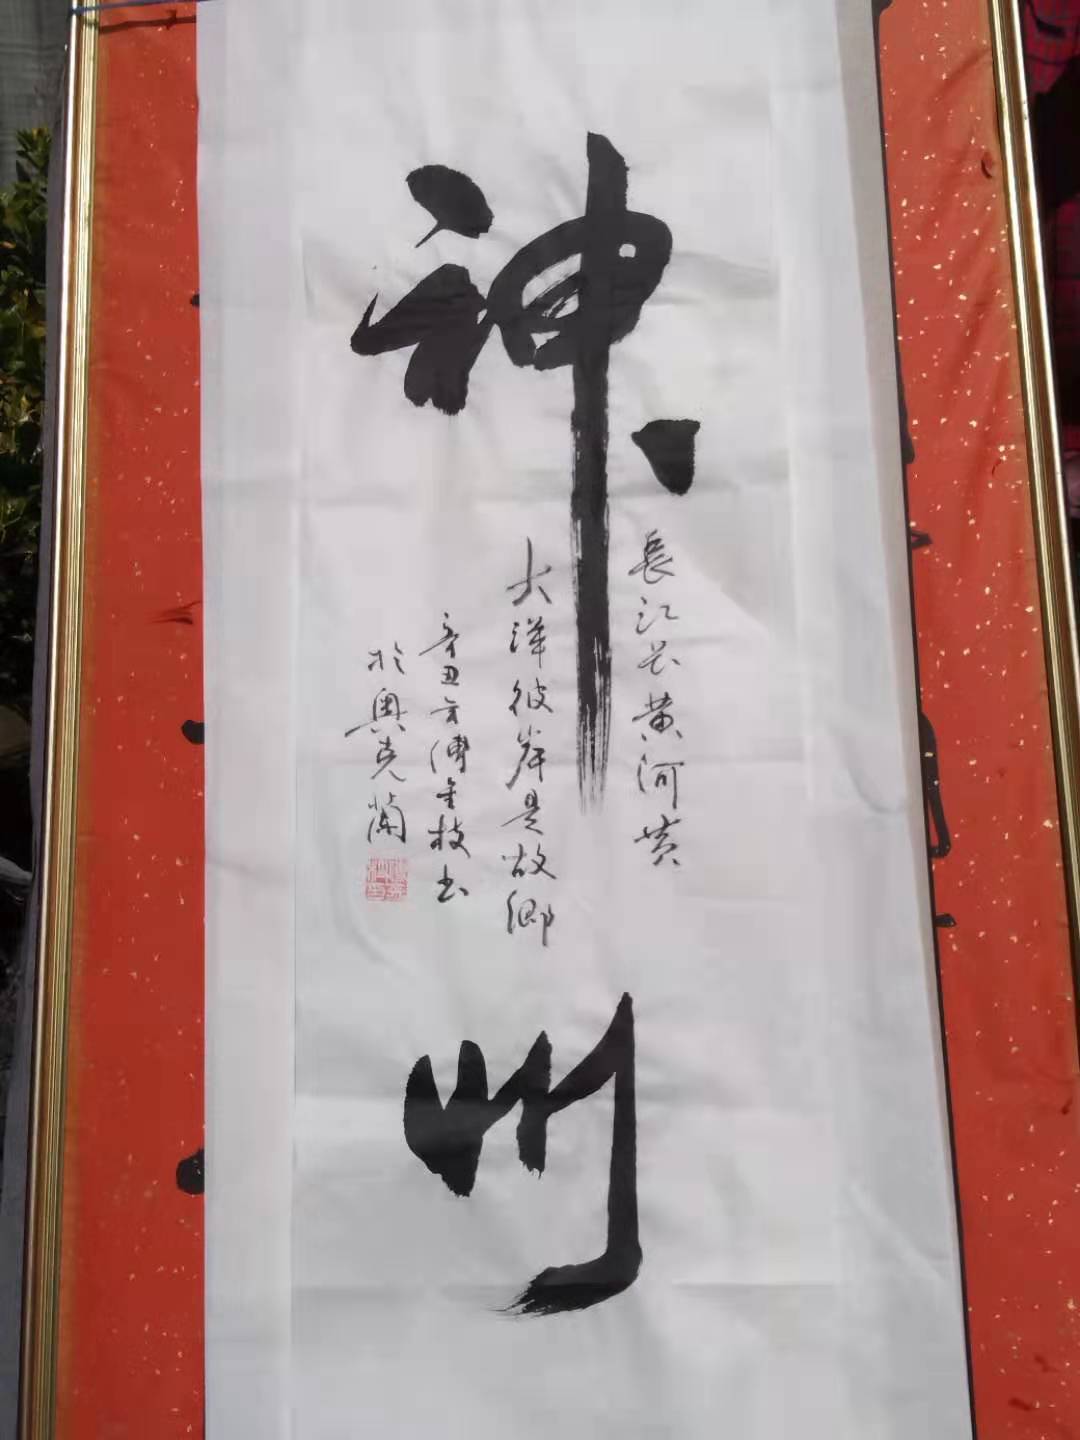 神州
長江长黄河黄
大洋彼岸是故鄉
辛丑方傅金枝书
於奥克蘭